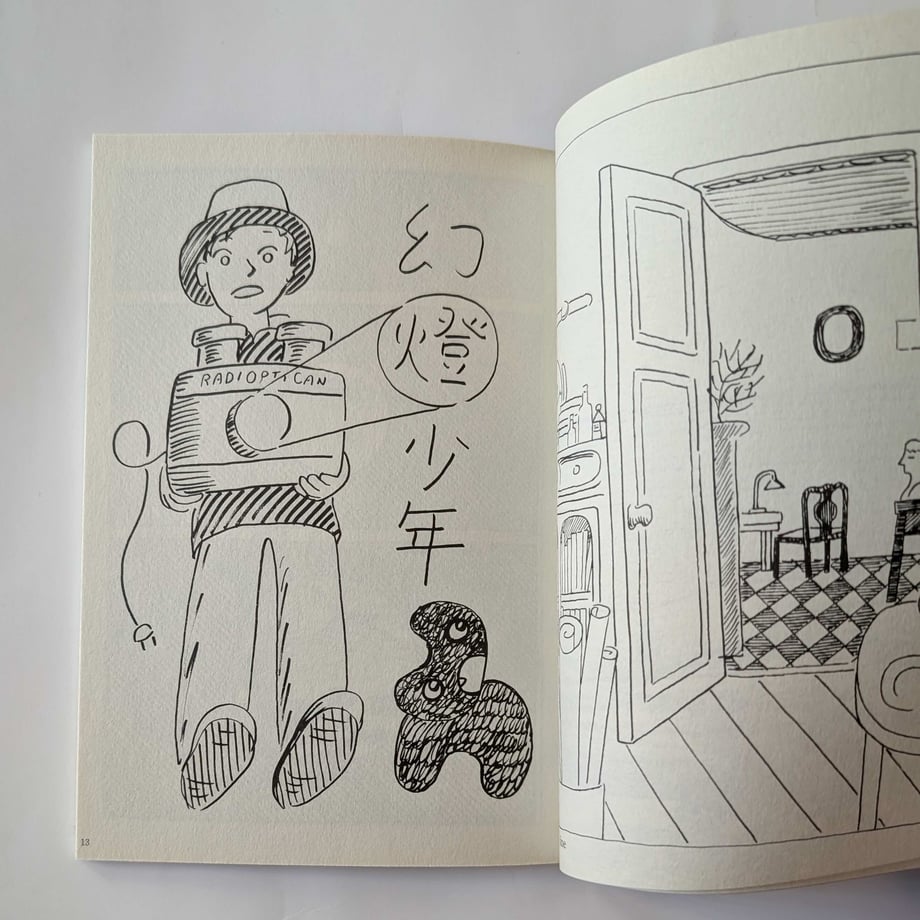 幻
燈
少
年
RADIOPTICAN
13